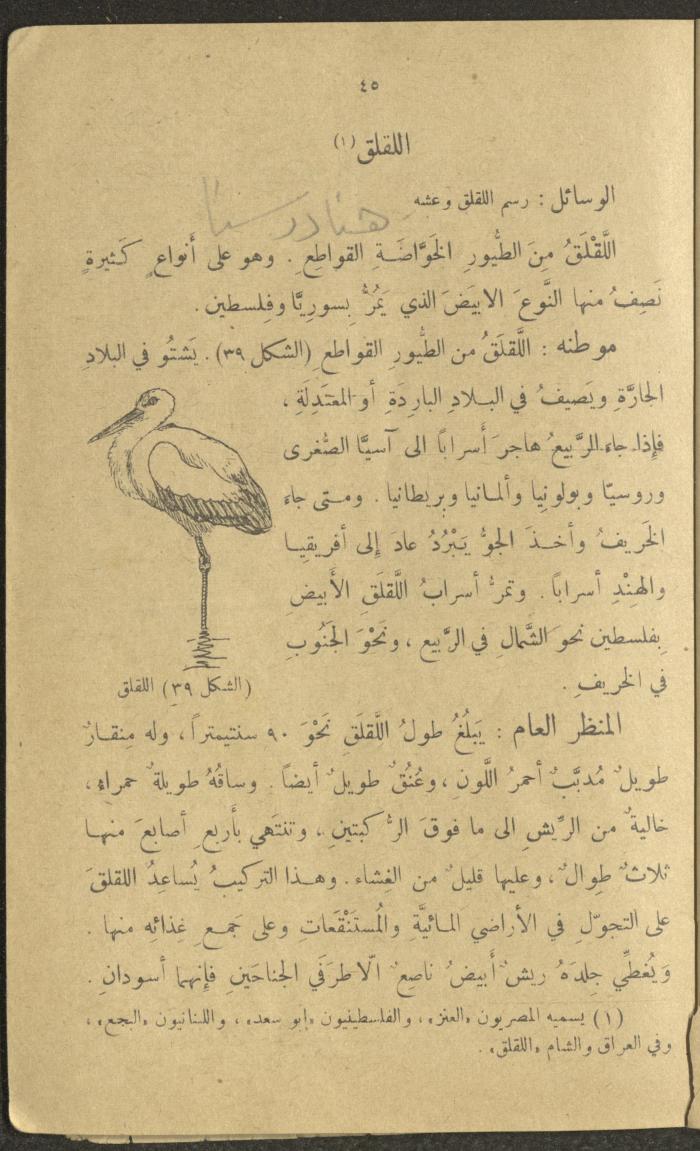 ٤٥
اللقلق (١)
الوسائل : رسم اللقلق وعشه
اللَّقْلَقُ مِنَ الطُّيورِ الخَوَّاضَةِ القواطِعِ . وهو على أَنواعٍ كَثيرةٍ
نَصِفُ منها النَّوعَ الابيَضَ الذي يَمُرُّ بِسوريَّا وفِلسطين .
موطنه : اللَّقلَقُ من الطُّيورِ القواطعِ (الشكل ٣٩) . يَشتُو في البلادِ
الحارَّةِ ويَصيفُ في البلادِ البارِدَةِ أو المعتَدِلَةِ ،
فإِذا جاءَ الرَّبيعُ هاجرَ أَسراباً الى آسيَّا الصُّغرى
وروسيّا وبولونِيا وألمانيا وبريطانيا . ومتى جاء
الخَريفُ وأخذَ الجوُّ يَبْرُدُ عادَ إلى أفريقِيا
والهِنْدِ أسراباً . وتمرُّ أسرابُ اللَّقلَقِ الأَبيضِ
بِفلسطين نحوَ الشَّمالِ في الرَّبيع ، ونَحْوَ الجَنُوبِ
في الخريفِ .
(الشكل ٣٩) اللقلق
المنظر العام : يَبلُغُ طولُ اللَّقلَقِ نَحْوَ ٩٠ سنتيمتراً ، وله مِنقارٌ
طويلٌ مُدبَّبٌ أحمرُ اللَّونِ ، وعُنُقٌ طويلٌ أيضاً . وساقُهُ طويلةٌ حمراء ،
خاليةٌ من الرِّيشِ الى ما فوقَ الرُّكبتينِ ، وتنتَهي بأَربعِ أصابعَ منها
ثلاثٌ طِوالٌ ، وعليها قليلٌ من الغِشاء . وهذا التركيبُ يُساعِدُ اللقلقَ
على التجوّلِ في الأراضي المائيَّةِ والمُستَنْقَعاتِ وعلى جَمعِ غِذائِه منها .
وَيُغطِّي جِلدَهُ ريشٌ أَبيضُ ناصِعٌ الّا طرَفَي الجناحَينِ فإِنهما أسودانِ .
(١) يسميه المصريون «العنز» ، والفلسطينيون «ابو سعد» ، واللبنانيون «البجع» ،
وفي العراق والشام «اللقلق» .